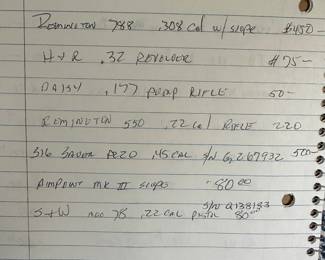 REMINGTON 788 .308 Cal w/ scope $450-
H+R .32 REVOLVER $75-
DAISY .177 PUMP RIFLE 50-
REMINGTON 550 .22 Cal RIFLE 220
P220 .45 CAL S/N G267932 500-
AIMPOINT MK III SCOPE 80.00
S/N Q138183
S+W MOD 78 .22 CAL 80.00